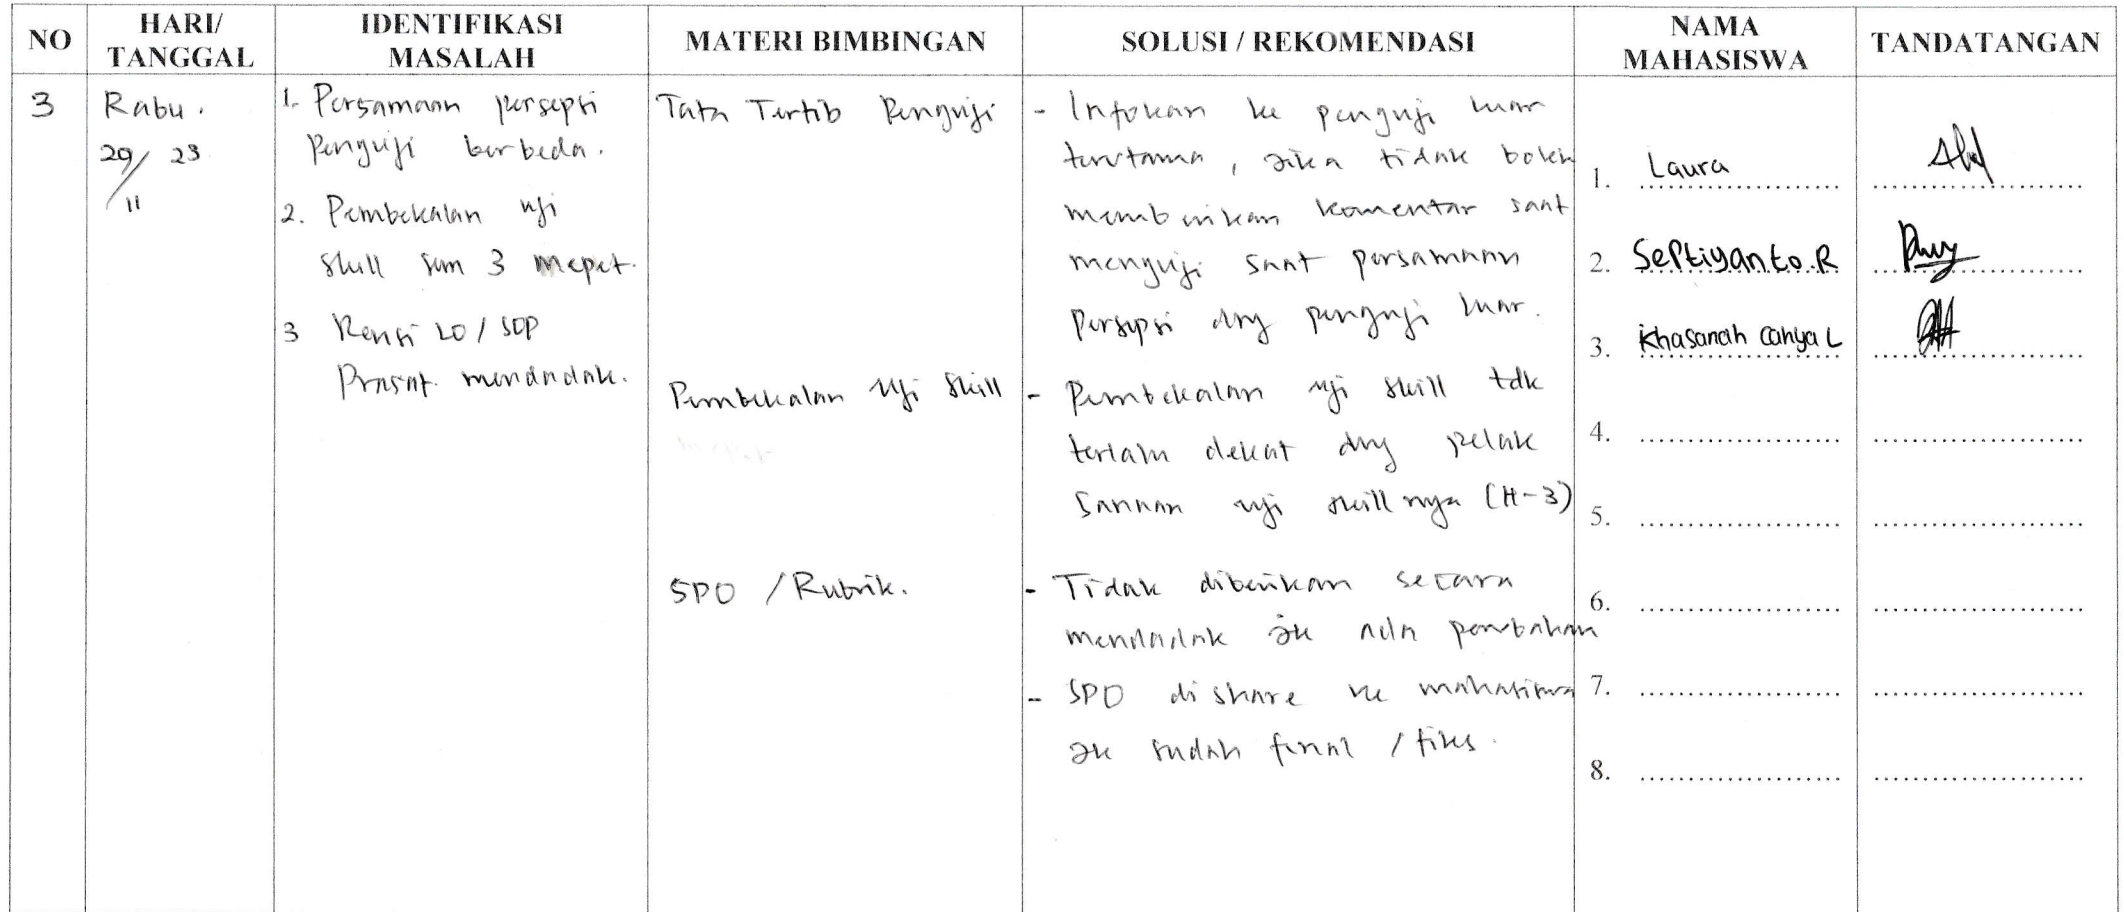 NO
HARI/
TANGGAL
IDENTIFIKASI
MASALAH
MATERI BIMBINGAN
SOLUSI / REKOMENDASI
NAMA
MAHASISWA
TANDATANGAN
3
Rabu.
29/ 23
/ 11
1. Persamaan persepsi
Penguji berbeda.
2. Pembekalan uji
skill sem 3 mepet.
3 Revisi LO / SOP
Prasat. mendadak.
Tata Tertib Penguji
Pembekalan Uji Skill
SPO / Rubrik.
- Infokan ke penguji luar
terutama, jika tidak boleh
memberikan komentar saat
menguji saat persamaan
Persepsi dng penguji luar.
- Pembekalan uji skill tdk
terlalu dekat dng pelak
sanaan uji skillnya (H-3)
- Tidak diberikan secara
mendadak jk ada perubahan
- SPO di share ke mahasiswa
jk sudah final / fiks.
1. Laura
2. Septiyanto.R
3. Khasanah Cahya L
4.
5.
6.
7.
8.